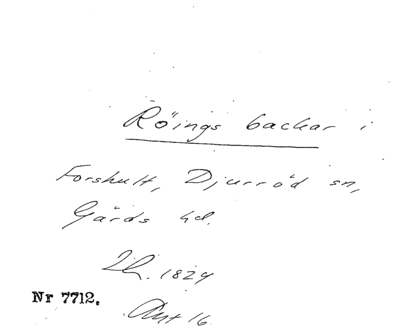 Röings backar i
Forshult, Djurröd sn,
Gärds hd.
Lh. 1829
Nr 7712.
Akt 16